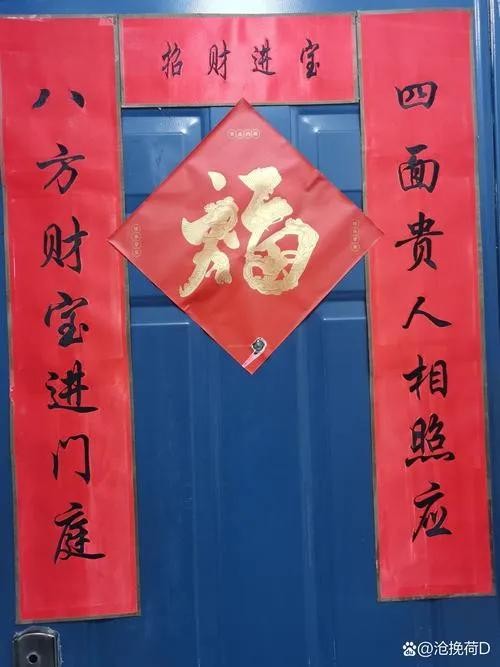 招财进宝
四面贵人相照应
八方财宝进门庭
福
@沧挽荷D